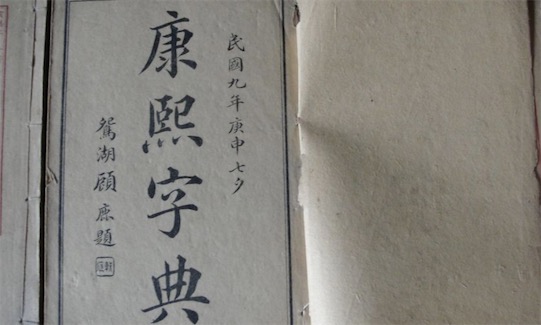 民國九年庚申七夕
康熙字典
鴛湖顧𢊍題